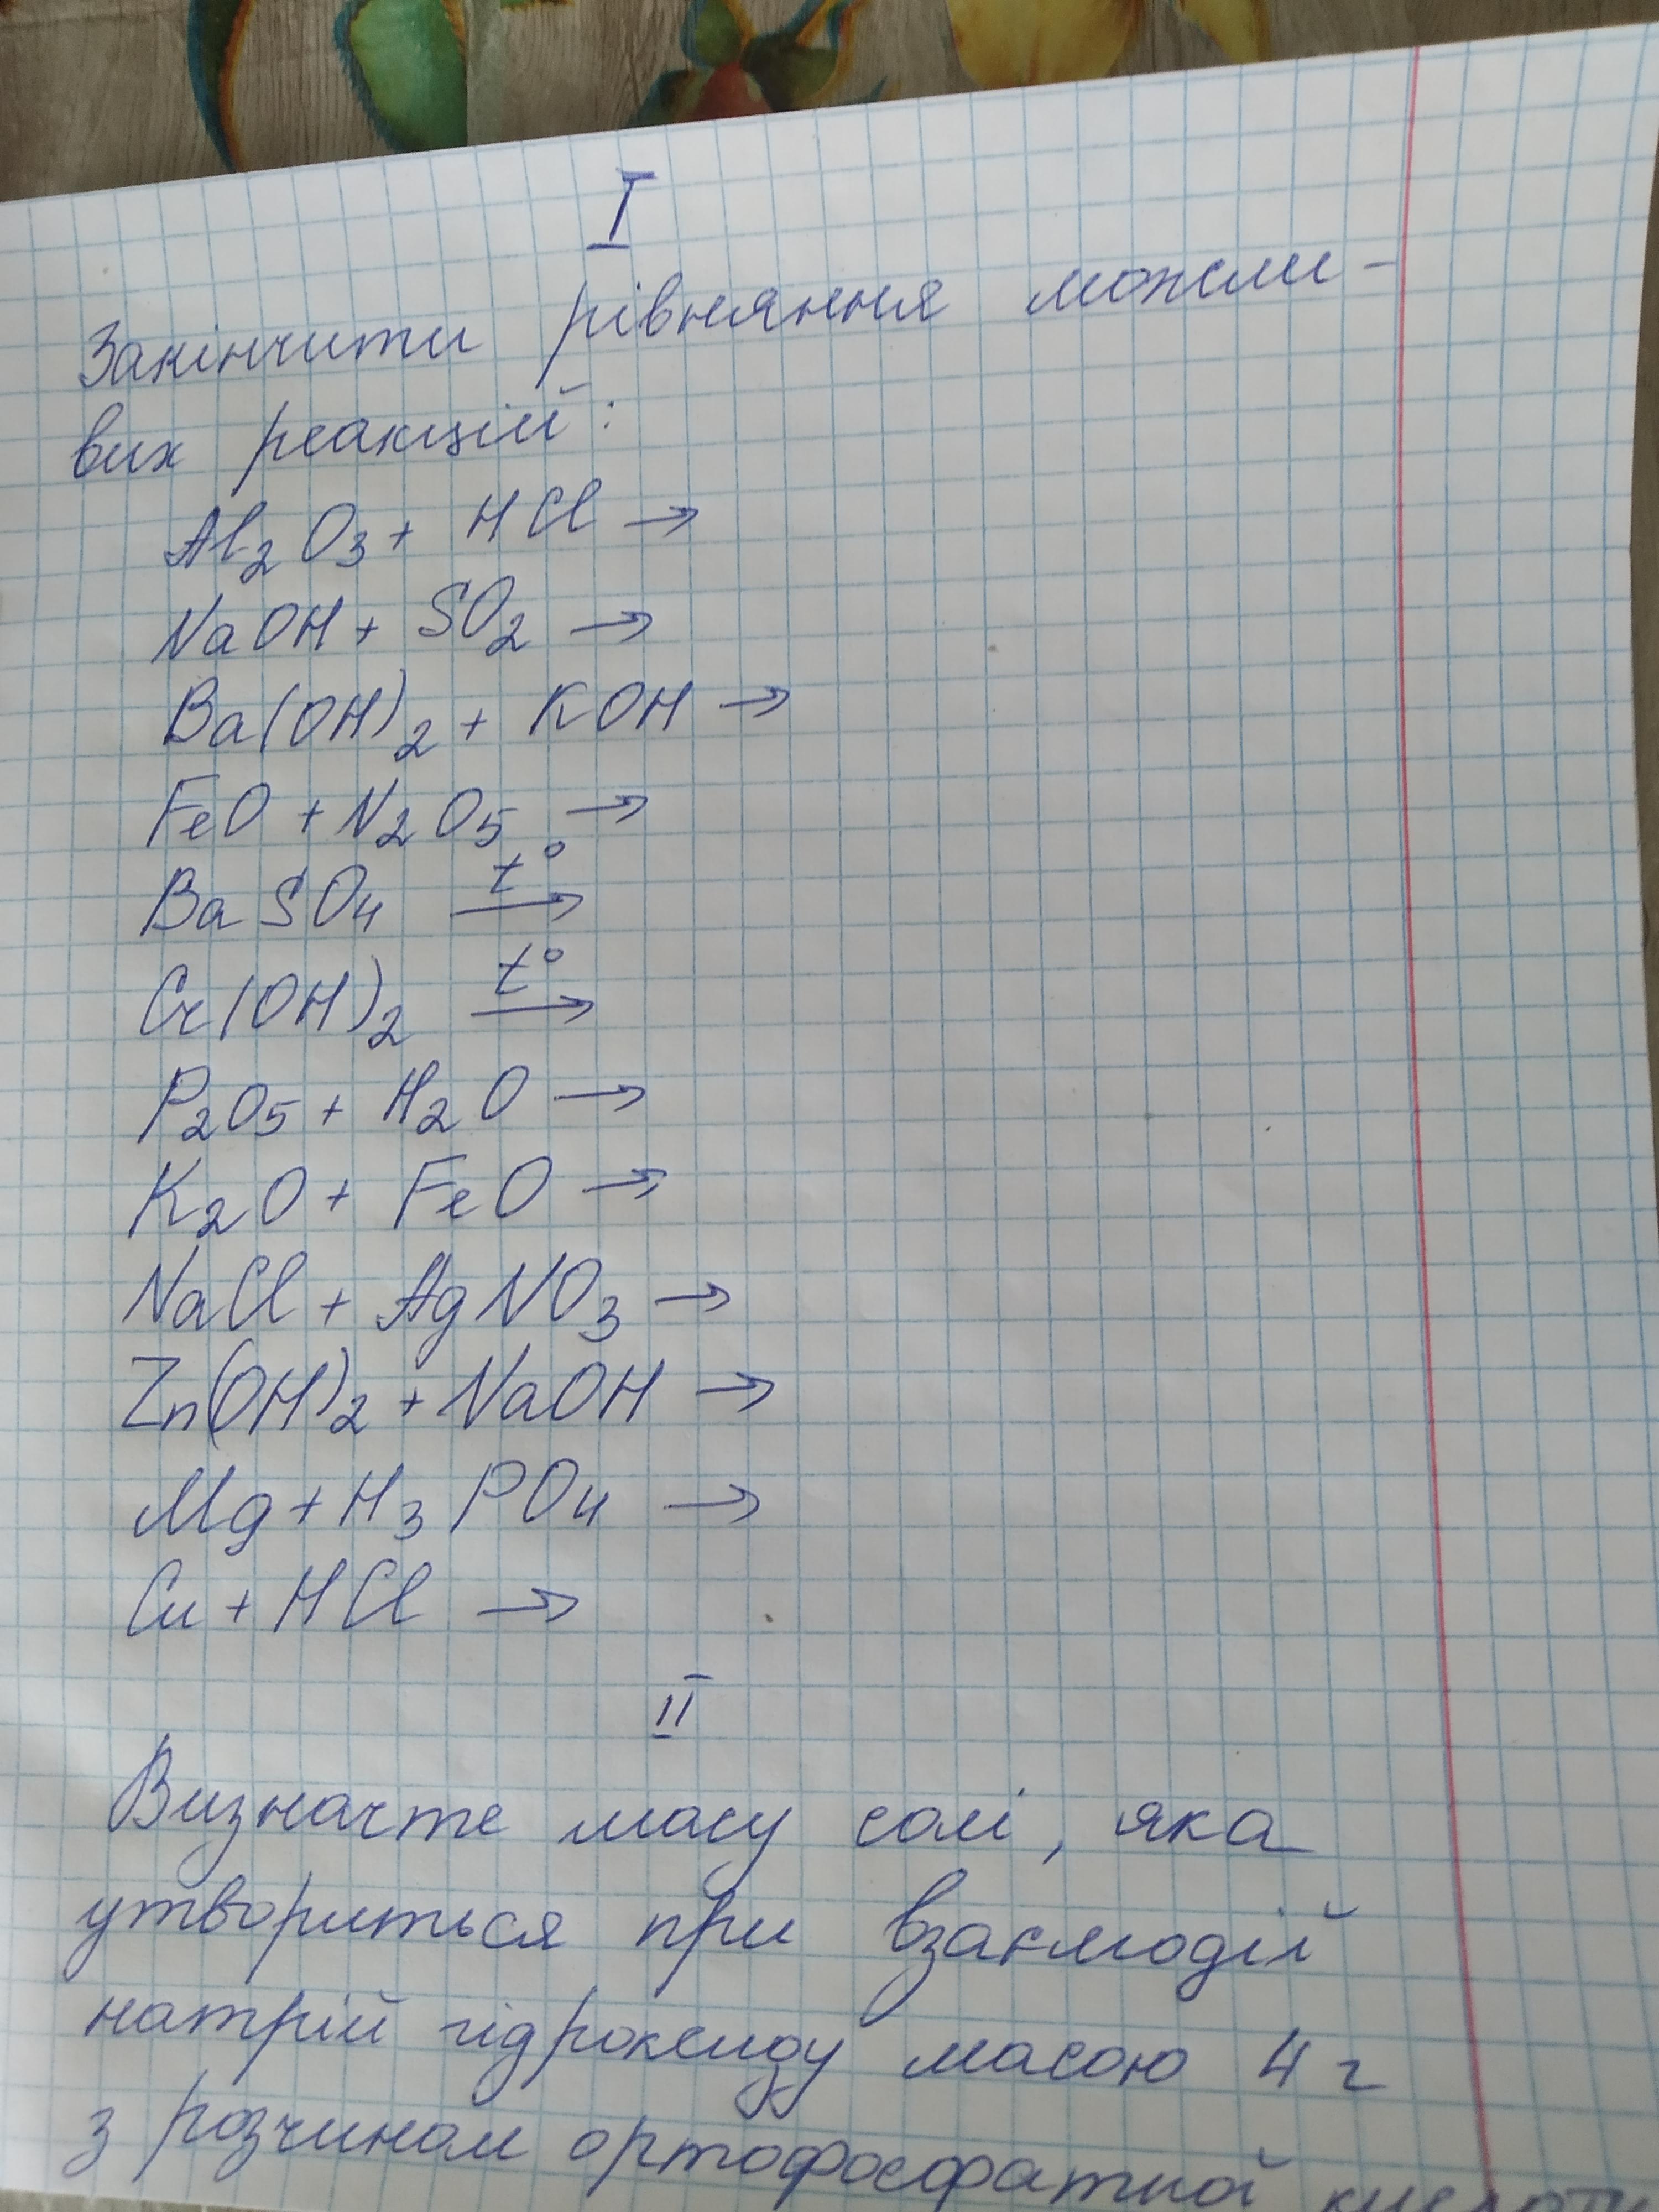 I
Закінчити рівняння можли-
вих реакцій:
Al₂O₃ + HCl →
NaOH + SO₂ →
Ba(OH)₂ + KOH →
FeO + N₂O₅ →
BaSO₄ t° →
Cr(OH)₂ t° →
P₂O₅ + H₂O →
K₂O + FeO →
NaCl + AgNO₃ →
Zn(OH)₂ + NaOH →
Mg + H₃PO₄ →
Cu + HCl →
II
Визначте масу солі, яка
утвориться при взаємодій
натрій гідроксиду масою 4 г
з розчином ортофосфатної кислоти